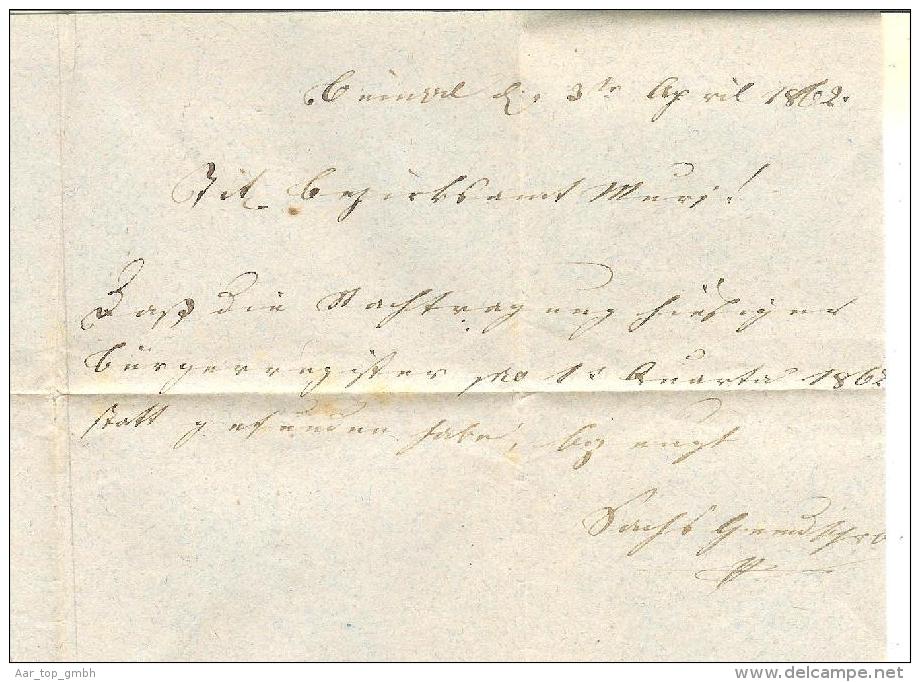 Beinwil d. 3te April 1862.
Tit. Bezirksamt Muri!
Daß die Nachtragung hiesiger
Bürgerregister pro 1s Quartal 1862
statt gefunden habe, bezeugt
Sachs Gemdschrb
Aar_top_gmbh
www.delcampe.net